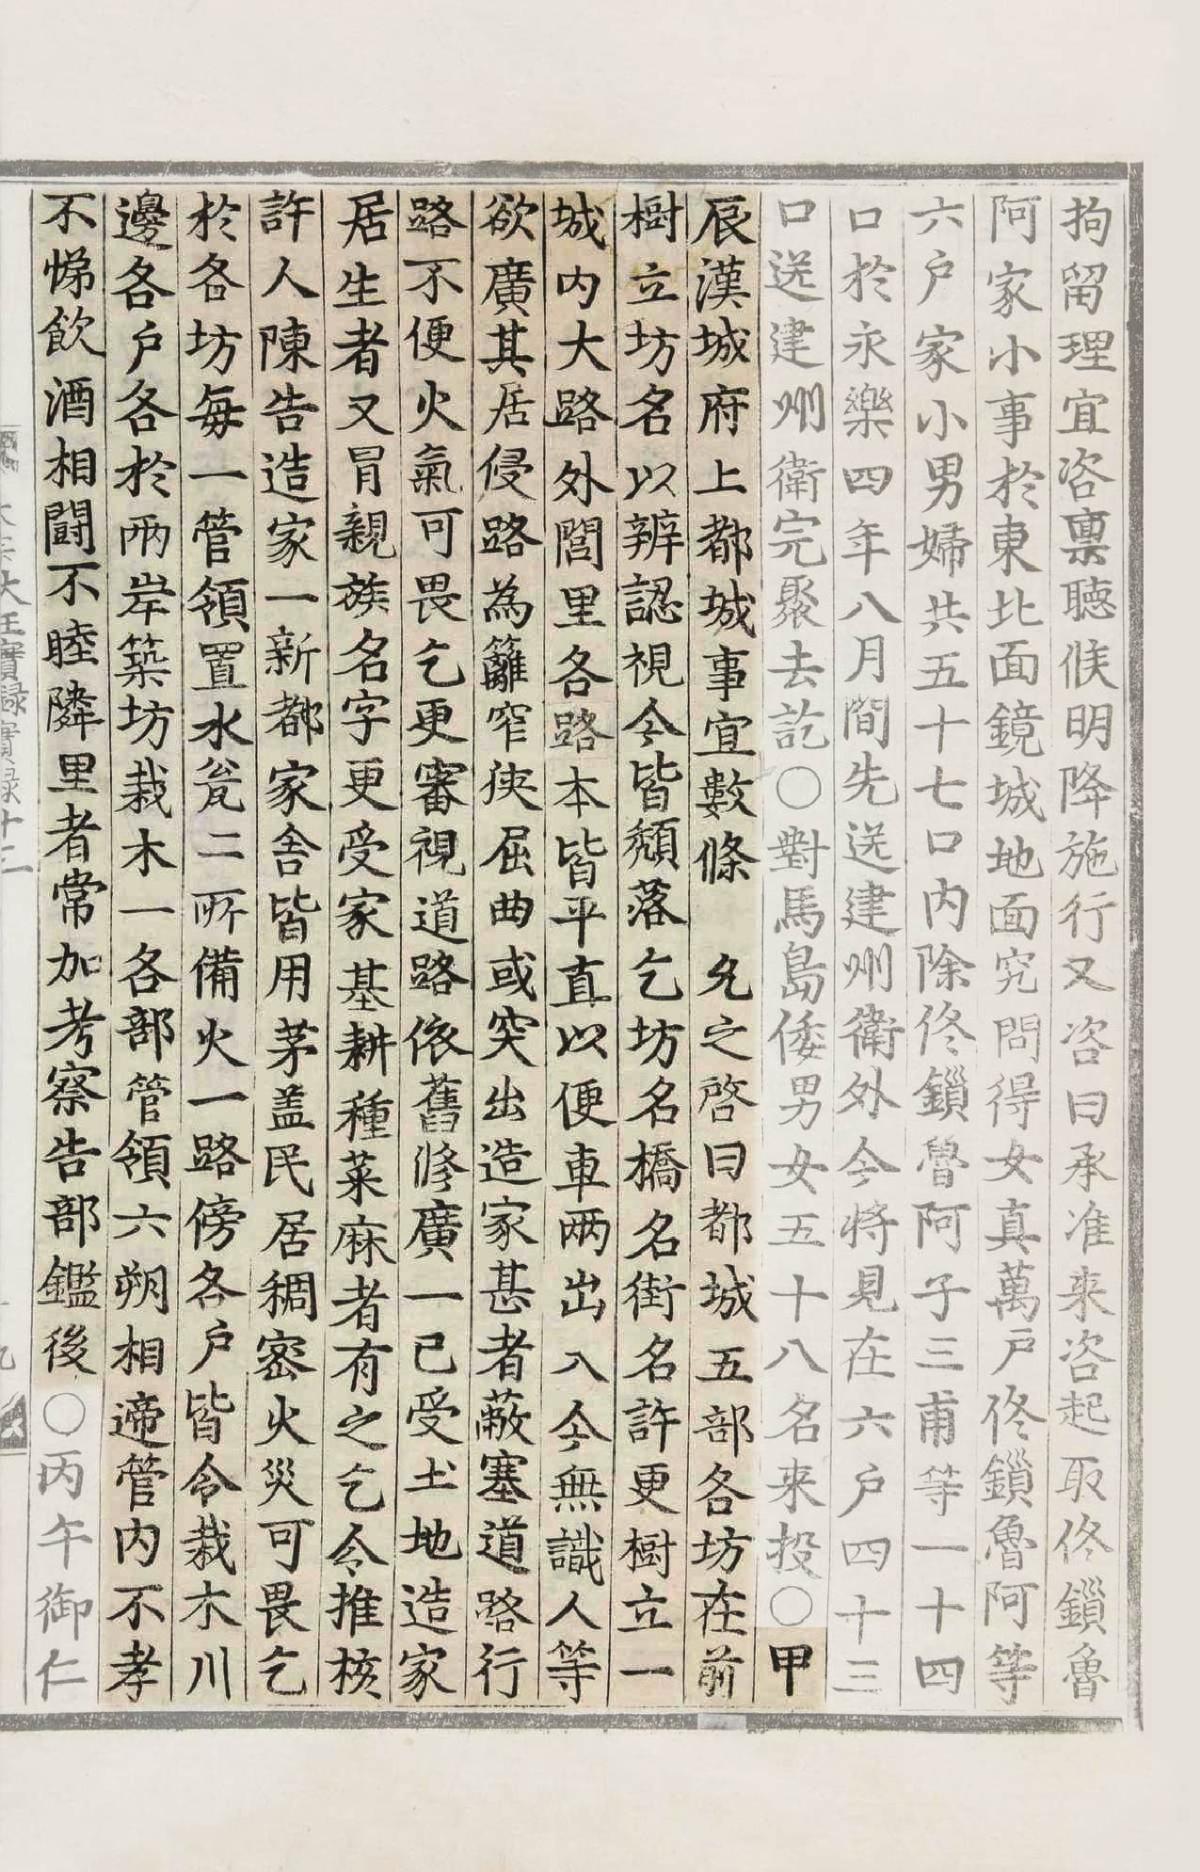 拘留理宜咨稟聽候明降施行又咨曰承准来咨起取佟鎖魯
阿家小事於東北面鏡城地面究問得女真萬戶佟鎖魯阿等
六戶家小男婦共五十七口内除佟鎖魯阿子三甫等一十四
口於永樂四年八月間先送建州衛外今將見在六戶四十三
口送建州衛完聚去訖○對馬島倭男女五十八名来投○甲
辰漢城府上都城事宜數條 允之啓曰都城五部各坊在前
樹立坊名以辨認視今皆頹落乞坊名橋名街名許更樹立一
城内大路外閭里各路本皆平直以便車兩出入今無識人等
欲廣其居侵路為籬窄狹屈曲或突出造家甚者蔽塞道路行
路不便火氣可畏乞更審視道路依舊修廣一已受土地造家
居生者又冐親族名字更受家基耕種菜麻者有之乞令推核
許人陳告造家一新都家舍皆用茅盖民居稠密火災可畏乞
於各坊每一管領置水瓮二所備火一路傍各戶皆令栽木川
邊各戶各於兩岸築坊栽木一各部管領六朔相遞管内不孝
不悌飲酒相鬪不睦隣里者常加考察告部鑑後○丙午御仁
大王實録實録十二